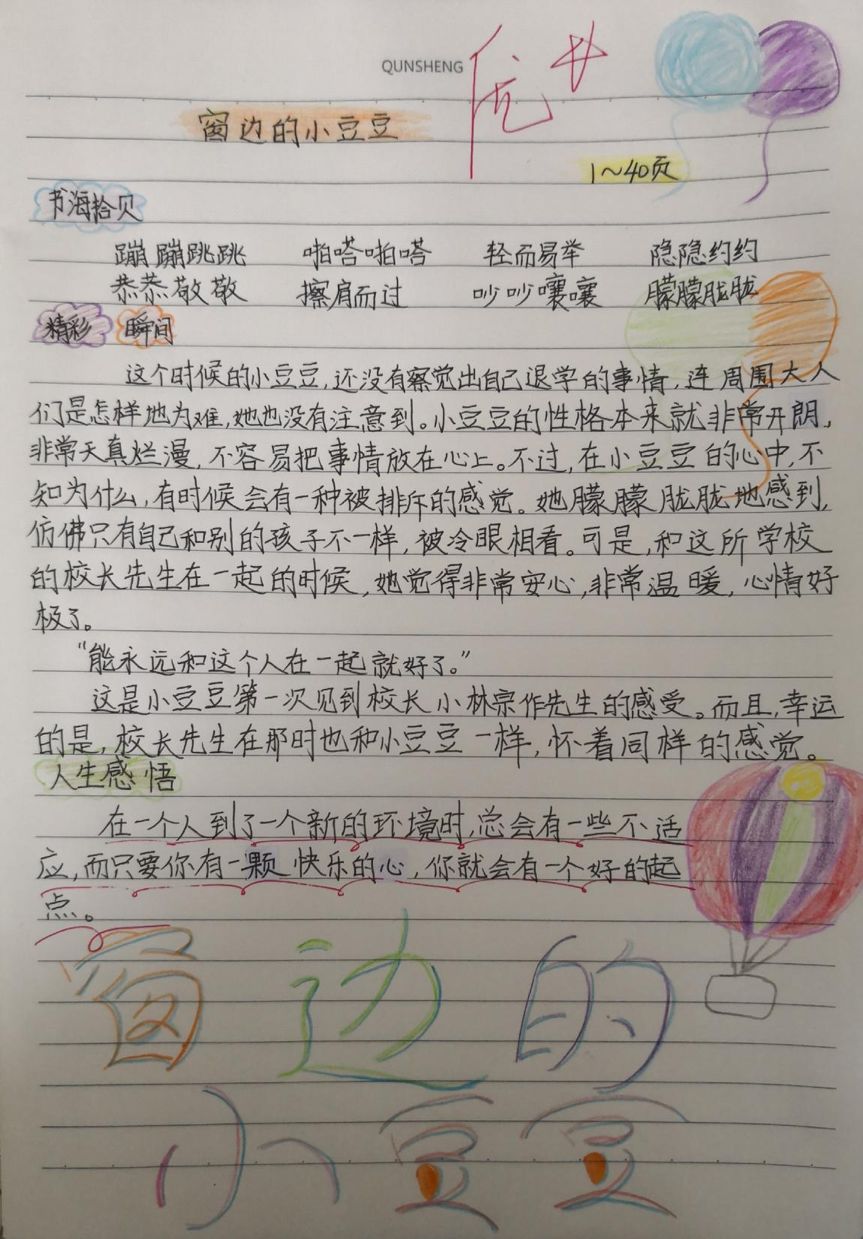 QUNSHENG
优+
窗边的小豆豆
1~40页
书海拾贝
蹦蹦跳跳 啪嗒啪嗒 轻而易举 隐隐约约
恭恭敬敬 擦肩而过 吵吵嚷嚷 朦朦胧胧
精彩 瞬间
这个时候的小豆豆,还没有察觉出自己退学的事情,连周围大人
们是怎样地为难,她也没有注意到。小豆豆的性格本来就非常开朗,
非常天真烂漫,不容易把事情放在心上。不过,在小豆豆的心中,不
知为什么,有时候会有一种被排斥的感觉。她朦朦胧胧地感到,
仿佛只有自己和别的孩子不一样,被冷眼相看。可是,和这所学校
的校长先生在一起的时候,她觉得非常安心,非常温暖,心情好
极了。
“能永远和这个人在一起就好了。”
这是小豆豆第一次见到校长小林宗作先生的感受。而且,幸运
的是,校长先生在那时也和小豆豆一样,怀着同样的感觉。
人生感悟
在一个人到了一个新的环境时,总会有一些不适
应,而只要你有一颗快乐的心,你就会有一个好的起
点。
窗边的
小豆豆